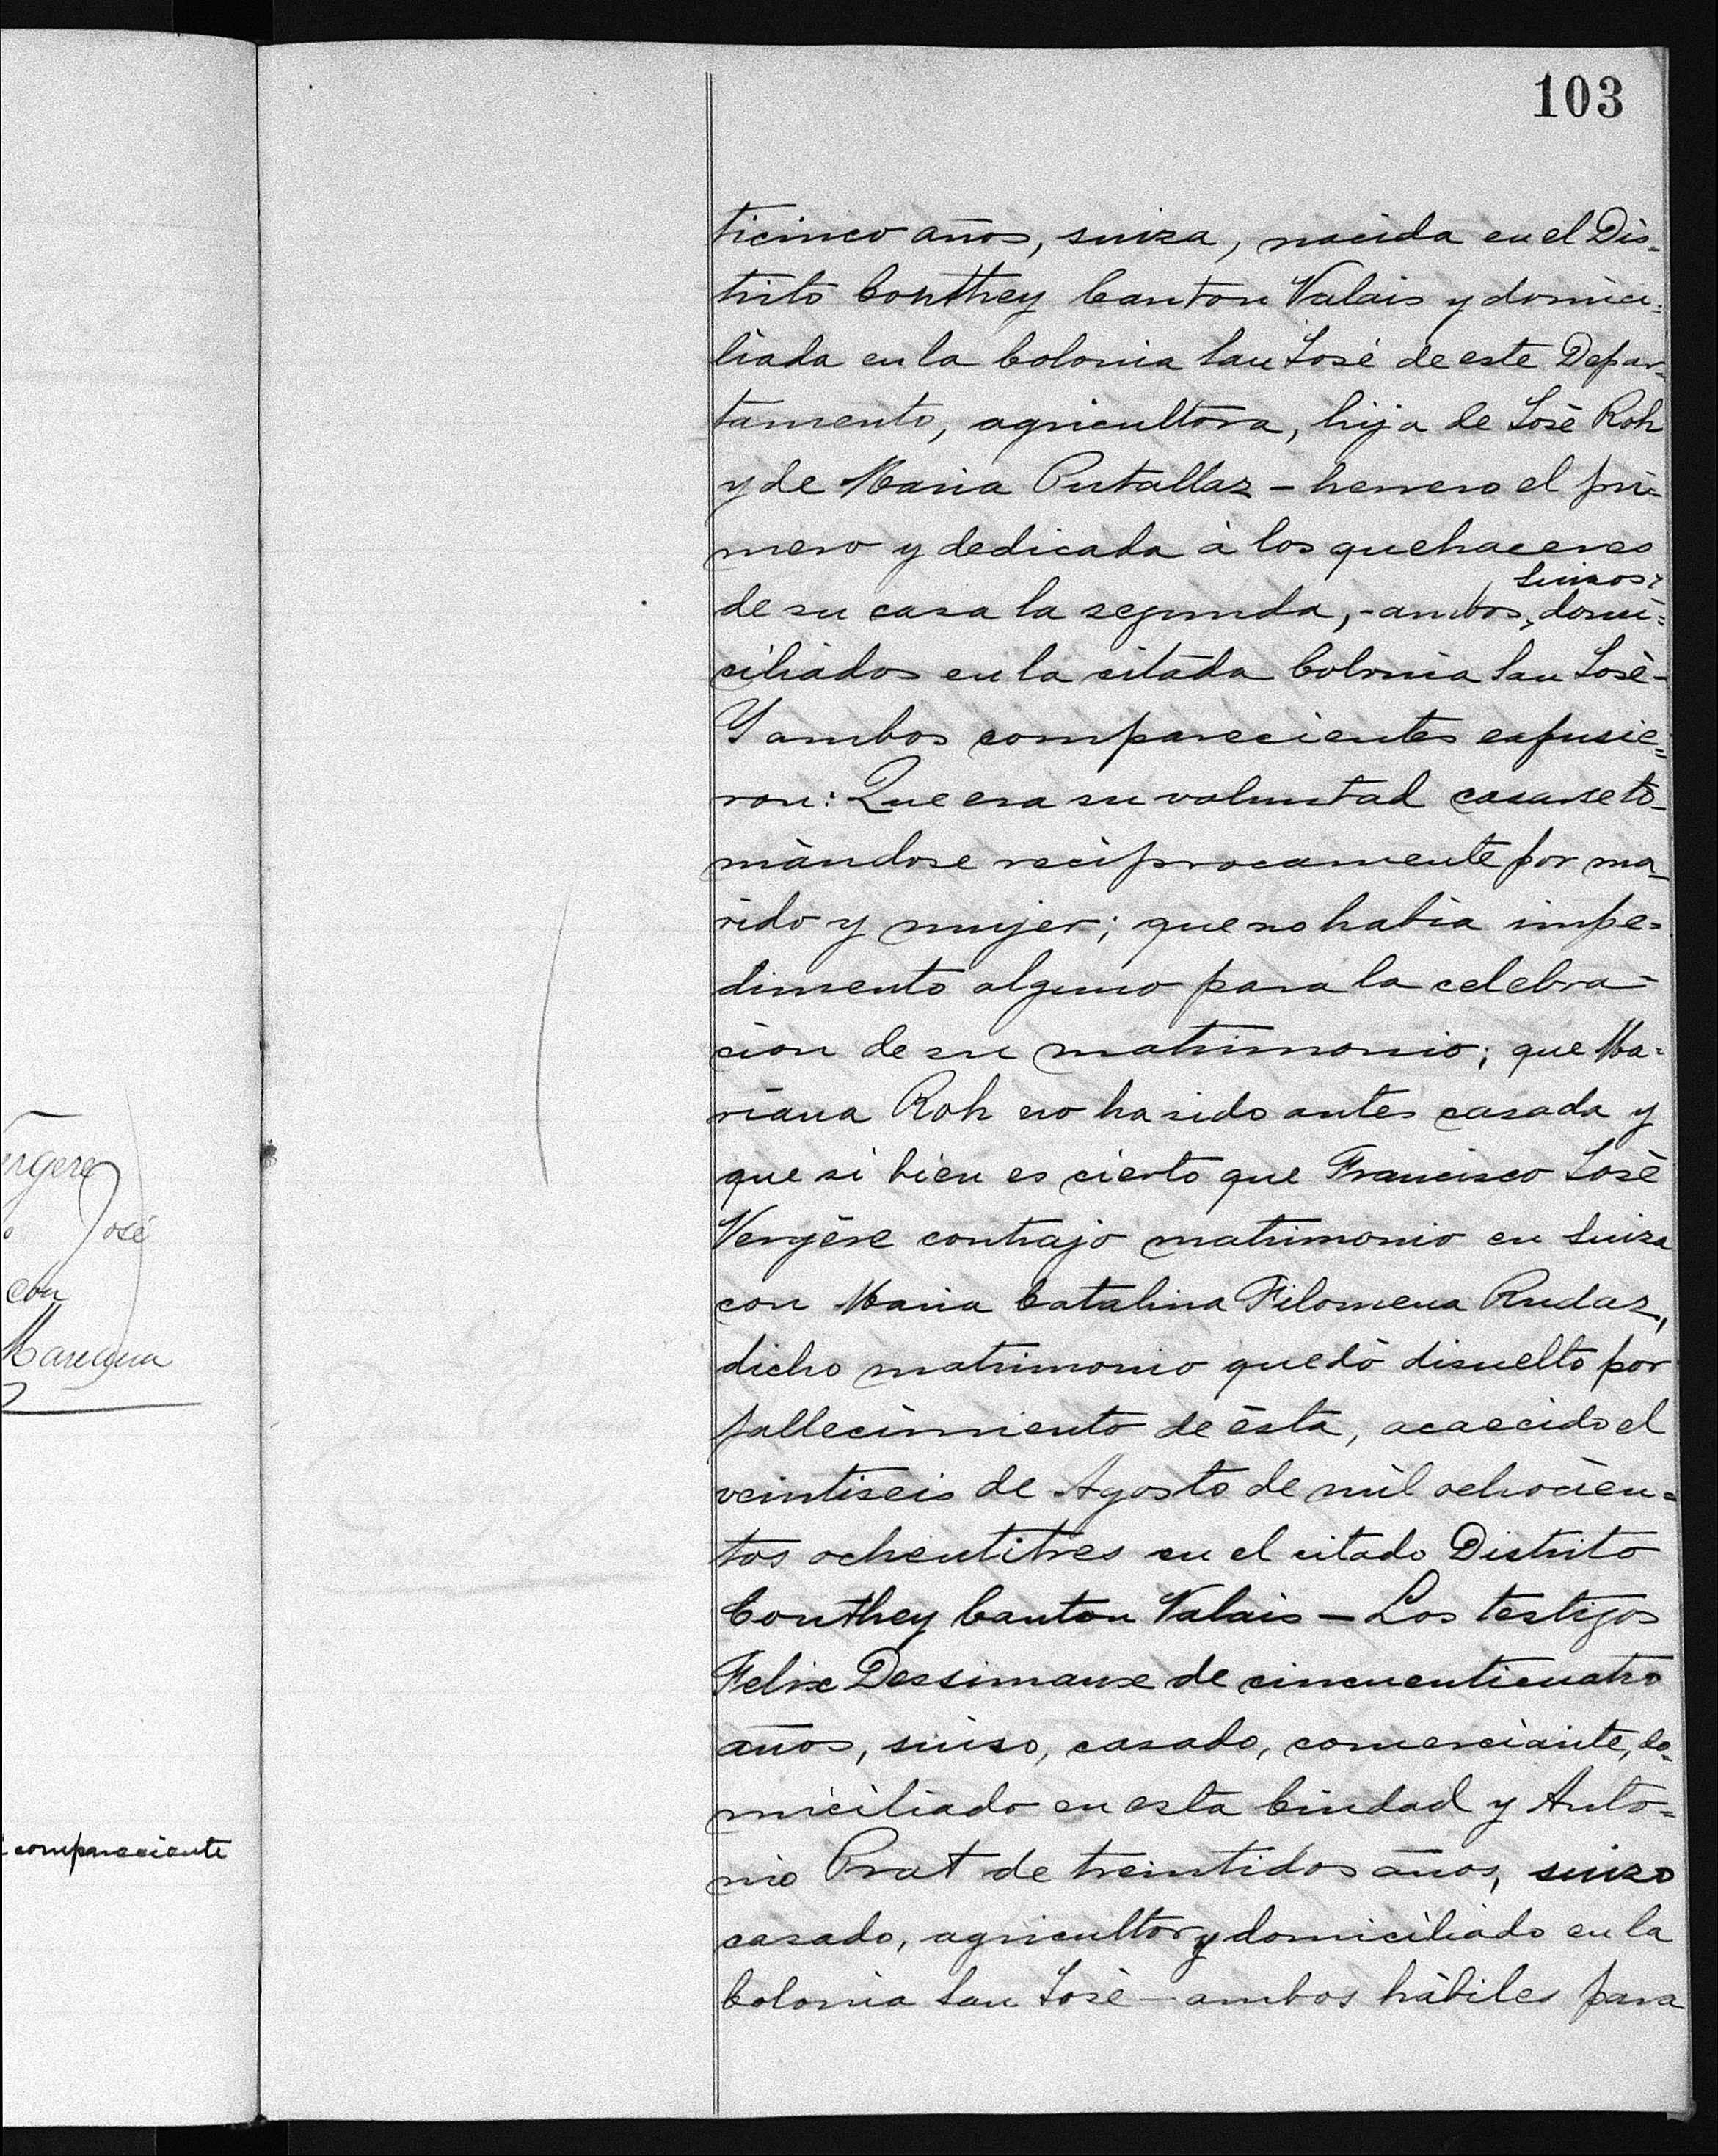 103
ticinco años, suiza, nacida en el Dis-
trito Conthey Canton Valais y domici-
liada en la Colonia San José de este Depar-
tamento, agricultora, hija de José Roh
y de Maria Putallaz - herrero el pri-
mero y dedicada à los quehaceres
suizos y
de su casa la segunda, - ambos, domi-
ciliados en la citada Colonia San José -
Y ambos comparecientes expusie-
ron: Que era su voluntad casarse to-
màndose reciprocamente por ma-
rido y mujer; que no habia impe-
dimento alguno para la celebra-
cion de su matrimonio; que Ma-
riana Roh no ha sido antes casada y
que si bien es cierto que Francisco José
Vergère contrajo matrimonio en Suiza
con Maria Catalina Filomena Rudaz,
dicho matrimonio quedò disuelto por
fallecimiento de ésta, acaecido el
veintiseis de Agosto de mil ochocien-
tos ochentitres en el citado Distrito
Conthey Canton Valais - Los testigos
Felix Dessimaux de cincuenticuatro
años, suiso, casado, comerciante, do-
miciliado en esta Ciudad y Anto-
nio Prat de treintidos años, suizo
casado, agricultor y domiciliado en la
Colonia San José - ambos hábiles para
ergere
José
con
Mariana
compareciente